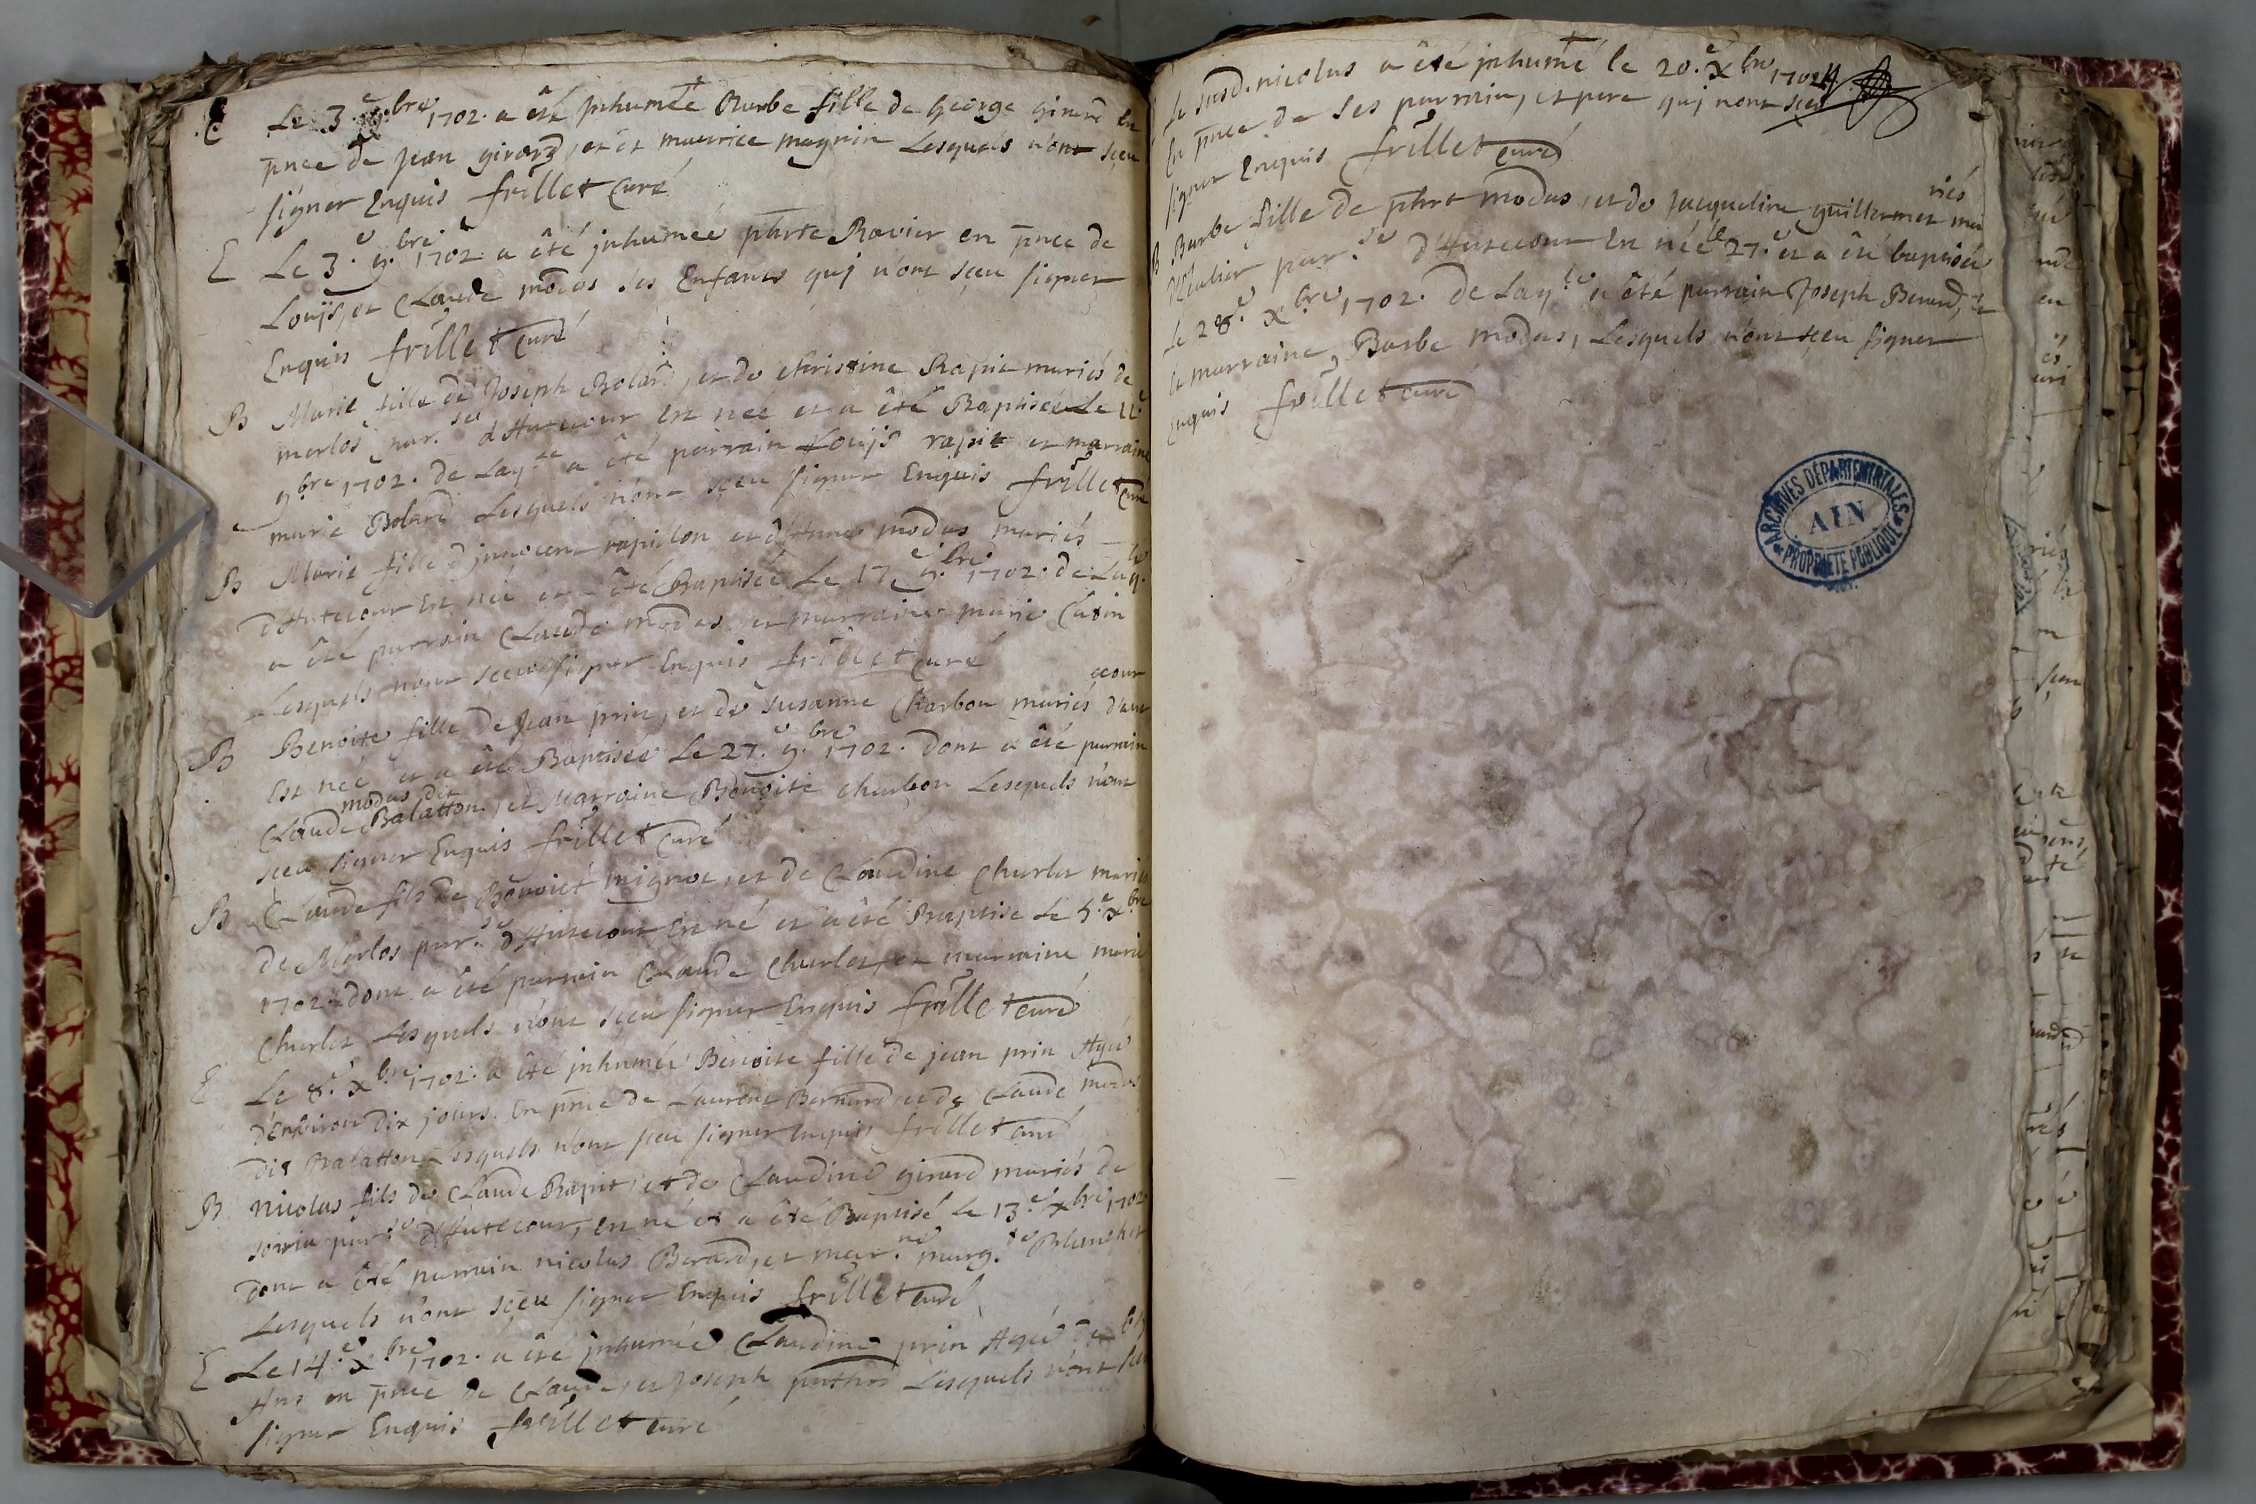 E Le 3.e 9.bre 1702. a êté jnhumée Barbe fille de George girard en
pnce de jean girard, et de maurice magnin Lesquels n'ont sceu
signer Enquis frillet Curé
E Le 3.e 9.bre 1702 a êté jnhumée Ravier en pnce de
Louys, et Claude modas ses Enfants quj n'ont sceu signer
Enquis frillet Curé
B Marie fille de Joseph Bolard, et de christine Rapit mariés de
merlos par.sse d'Hutecour est neé et a êté Baptisée Le 11.e
9.bre 1702. de Laq.lle a êté parrain Louys rapit et marraine
marie Bolard Lesquels n'ont sceu signer Enquis frillet Curé
B Marie fille d'jnnocent rapillon et d'Anne modas mariés
d'Hutecour est neé et a êté Baptisée Le 17.e 9.bre 1702. de Laq.lle
a êté parrain Claude modas et marraine marie Catin
Lesquels n'ont sceu signer Enquis frillet Curé
B Benoite fille de Jean prin, et de Susanne Charbon mariés d'aut
ecour
Est neé et a êté Baptisée Le 27.e 9.bre 1702. dont a êté parrain
modas dit
Claude Balatton, et Marraine Benoite charbon Lesquels n'ont
sceu signer Enquis frillet Curé
B Claude fils de Benoict mignot, et de Claudine Charlet mariés
de Merlos par.sse d'Hutecour Est né et a êté Baptisé Le 5.e x.bre
1702. dont a êté parrain Claude Charlet, et marraine marie
Charlet Lesquels n'ont sceu signer Enquis frillet curé
E Le 8.e x.bre 1702. a êté jnhumée Benoite fille de jean prin Agée
d'Environ dix jours. En pnce de Laurent Bernard, et de Claude modas
dit Balatton Lesquels n'ont sceu signer Enquis frillet curé
B Nicolas fils de Claude Rapit, et de Claudine girard mariés de
par.sse d'Hutecour, Est né et a êté Baptisé Le 13.e x.bre 1702
Dont a êté parrain nicolas Berard, et mar.ne marg.te Blanchet
Lesquels n'ont sceu signer Enquis frillet curé
E Le 14.e x.bre 1702. a êté jnhumée Claudine prin Agée de
Ans en pnce de Claude, et Joseph Lesquels n'ont sceu
signer Enquis frillet curé
Le susd. nicolas a êté jnhumé le 20.e x.bre 1702
En pnce de ses parrain, et pere quj n'ont sceu
signer Enquis frillet curé
B Barbe fille de phrt modas, et de Jacqueline guillermet ma
riés
par.sse d'Hutecour Est née le 27.e et a êté baptisée
Le 28.e x.bre 1702. de Laq.lle a êté parrain Joseph Berard, et
la marraine, Barbe modas, Lesquels n'ont sceu signer
Enquis frillet curé
ARCHIVES DÉPARTEMENTALES
AIN
PROPRIÉTÉ PUBLIQUE